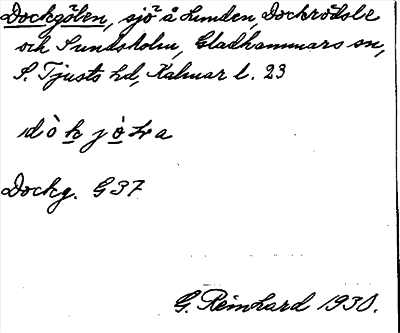 Dockgölen, sjö² å Lunden Dockrödsle
och Sundsholm, Gladhammars sn,
S. Tjusts hd, Kalmar l. 23
Dockg. G 37
G. Reinhard 1930.